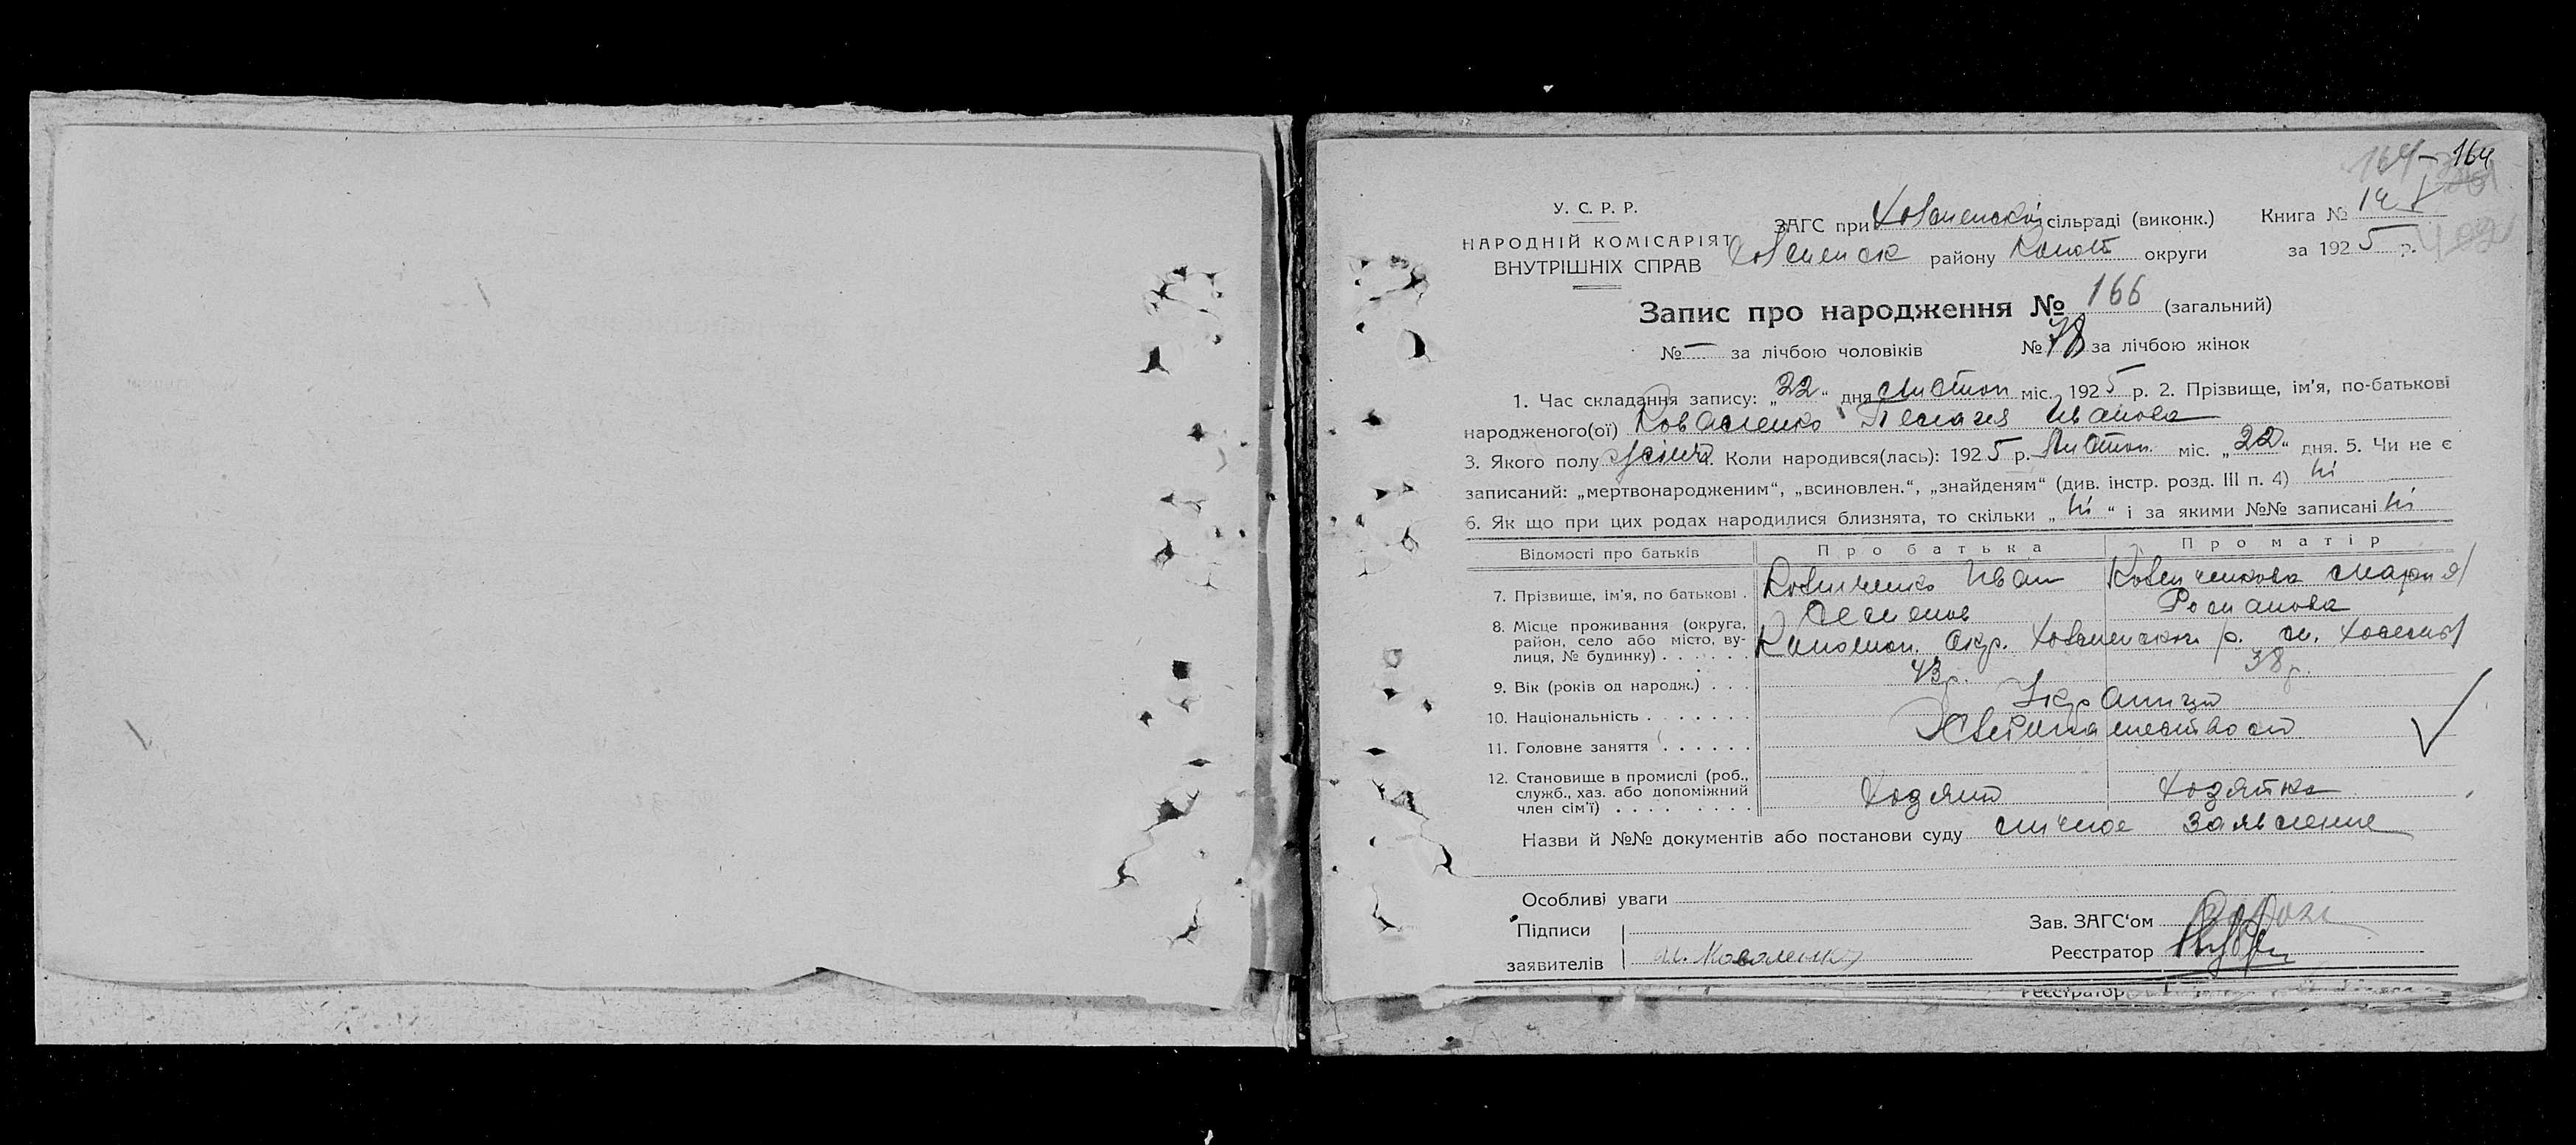 164 - 164
У. С. Р. Р.
НАРОДНІЙ КОМІСАРІЯТ
ВНУТРІШНІХ СПРАВ
ЗАГС при сільраді (виконк.)
району Коноть округи
Книга №
за 1925 р.
Запис про народження № 166 (загальний)
№ — за лічбою чоловіків № 78 за лічбою жінок
1. Час складання запису: „22“ дня Листоп міс. 1925 р. 2. Прізвище, ім'я, по-батькові
народженого(ої) Коваленко Пелагея Иванова
3. Якого полу жіноч 4. Коли народився(лась): 1925 р. Листоп. міс. „22“ дня. 5. Чи не є
записаний: „мертвонародженим“, „всиновлен.“, „знайденям“ (див. інстр. розд. III п. 4) ні
6. Як що при цих родах народилися близнята, то скільки „ні“ і за якими №№ записані ні
Відомості про батьків Про батька Про матір
7. Прізвище, ім'я, по батькові . Иван Мария
Семенов Романова
8. Місце проживання (округа,
район, село або місто, ву-
лиця, № будинку) . . . . . . Конотоп. Окр. р. м.
9. Вік (років од народж.) . . . 43 р. 38 р.
10. Національність . . . . . . . Українці
11. Головне заняття . . . . . .
12. Становище в промислі (роб.,
служб., хаз. або допоміжний
член сім'ї) . . . . . . . . Хозяин Хозяйка
Назви й №№ документів або постанови суду личное заявление
Особливі уваги
Підписи
заявителів Коваленко
Зав. ЗАГС'ом
Реєстратор
Реєстратор